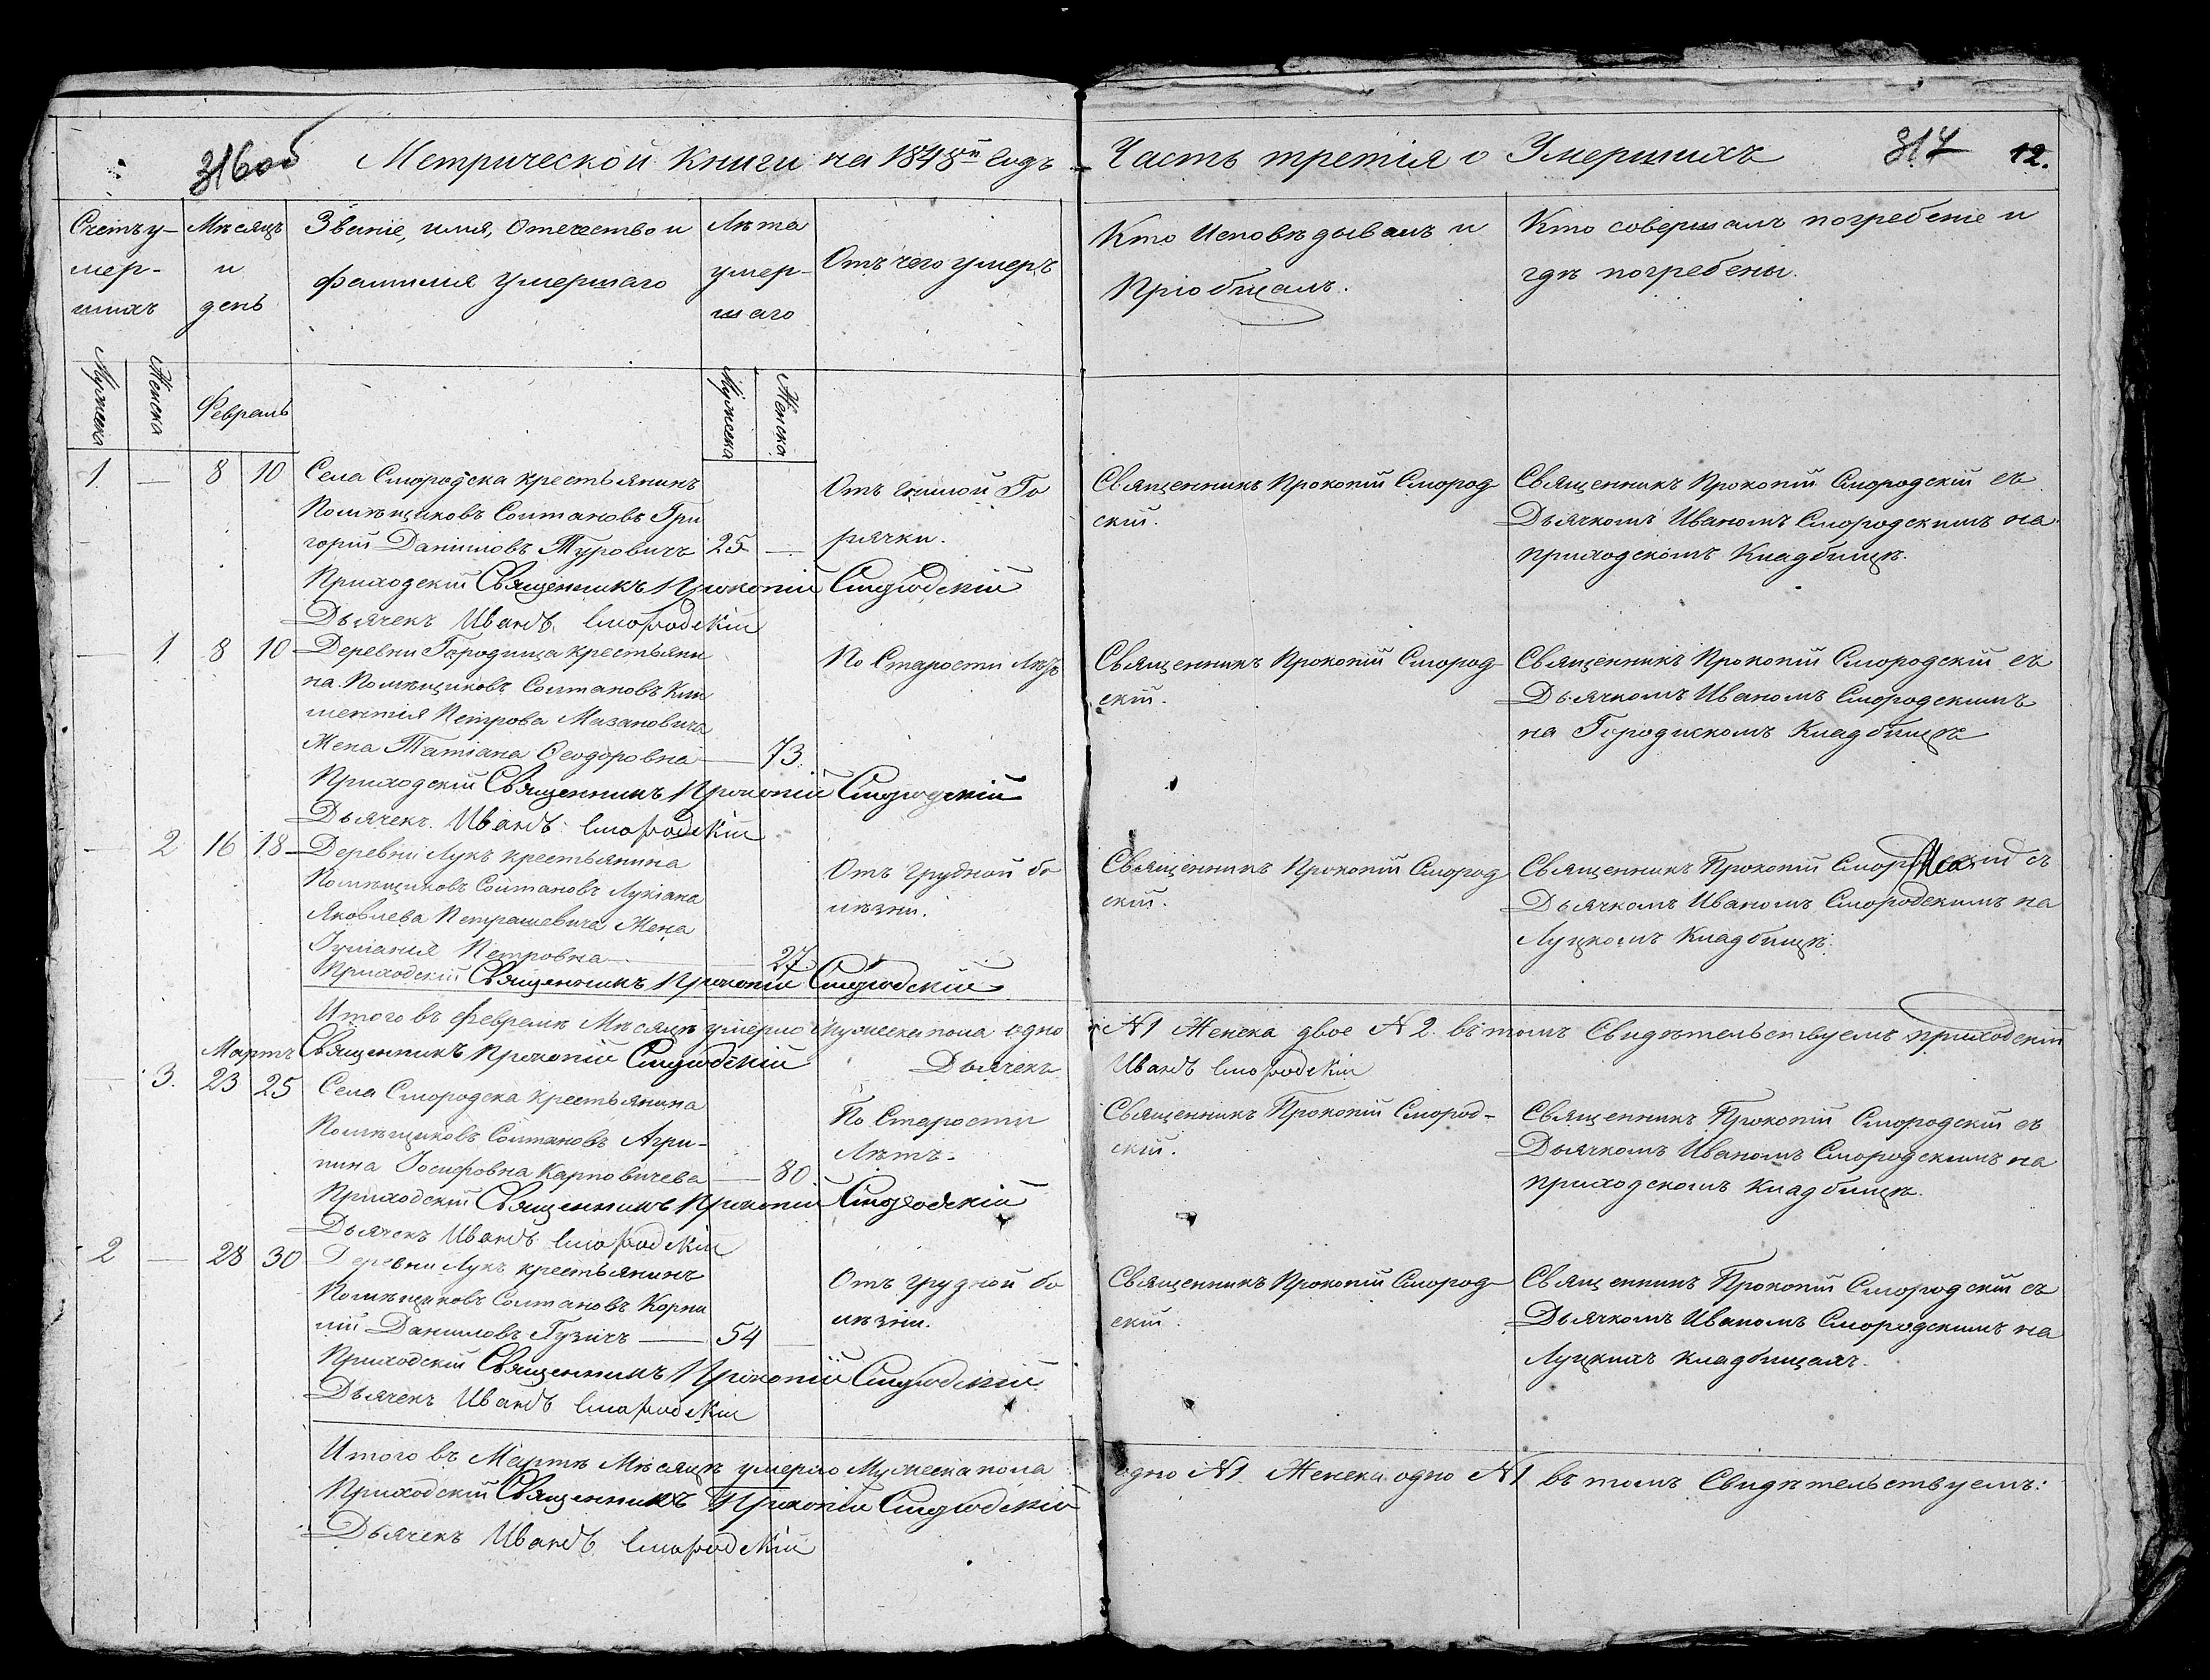 316об Метрической Книги на 1848й Годъ Часть третія о Умершихъ 317 12.
Счетъ у-
мер-
шихъ
Мѣсяцъ
и
день
Званіе, имя, Отечество и
фамилия Умершаго
Лѣта
умер-
шаго
Отъ чего умеръ
Кто Исповѣдывалъ и
Пріобщалъ.
Кто совершалъ погребеніе и
гдѣ погребены.
Мужеска
Женска
Февраль
Мужеска
Женска
1 — 8 10
Села Смородска крестьянинъ
Помѣщиковъ Солтановъ Гри
горій Даниловъ Туровичъ 25 —
Отъ гнилой Го
рячки.
Священникъ Прокопій Смород
скій.
Священникъ Прокопій Смородскій съ
Дьячкомъ Иваномъ Смородскимъ на
приходскомъ Кладбищѣ.
Приходскій Священникъ Прокопій Смородскій
Дьячекъ Иванъ Смородскій
— 1 8 10
Деревни Городища крестьяни
на Помѣщиковъ Солтановъ Кли
ментія Петрова Мазановича
Жена Татіана Ѳеодоровна — 73.
По Старости Лѣтъ
Священникъ Прокопій Смород
скій.
Священникъ Прокопій Смородскій съ
Дьячкомъ Иваномъ Смородскимъ
на Городискомъ Кладбищѣ
Приходскій Священникъ Прокопій Смородскій
Дьячекъ Иванъ Смородскій
— 2 16 18
Деревни Лукъ крестьянина
Помѣщиковъ Солтановъ Лукіана
Яковлева Петрашевича Жена
Іуліанія Петровна — 27
Отъ грудной бо
лѣзни.
Священникъ Прокопій Смород
скій.
Священникъ Прокопій Смородскій съ
Дьячкомъ Иваномъ Смородскимъ на
Луцкомъ Кладбищѣ.
Приходскій Священникъ Прокопій Смородскій
Итого въ Февралѣ Мѣсяцѣ умерло Мужеска пола одно N 1 Женска двое N 2. въ томъ Свидѣтельствуемъ приходскій
Священникъ Прокопій Смородскій Дьячекъ Иванъ Смородскій
Мартъ
— 3. 23 25
Села Смородска крестьянина
Помѣщиковъ Солтановъ Агри-
пина Іосифовна Карповичева — 80
По Старости
Лѣтъ.
Священникъ Прокопій Смород-
скій.
Священникъ Прокопій Смородскій съ
Дьячкомъ Иваномъ Смородскимъ на
приходскомъ Кладбищѣ.
Приходскій Священникъ Прокопій Смородскій
Дьячекъ Иванъ Смородскій
2 — 28 30
Деревни Лукъ крестьянинъ
Помѣщиковъ Солтановъ Корни
лій Даниловъ Гузичъ — 54 —
Отъ грудной бо
лѣзни.
Священникъ Прокопій Смород
скій.
Священникъ Прокопій Смородскій съ
Дьячкомъ Иваномъ Смородскимъ на
Луцкихъ кладбищахъ.
Приходскій Священникъ Прокопій Смородскій
Дьячекъ Иванъ Смородскій
Итого въ Мартѣ Мѣсяцѣ умерло Мужеска пола одно N 1 Женска одно N 1 въ томъ Свидѣтельствуемъ:
Приходскій Священникъ Прокопій Смородскій
Дьячекъ Иванъ Смородскій